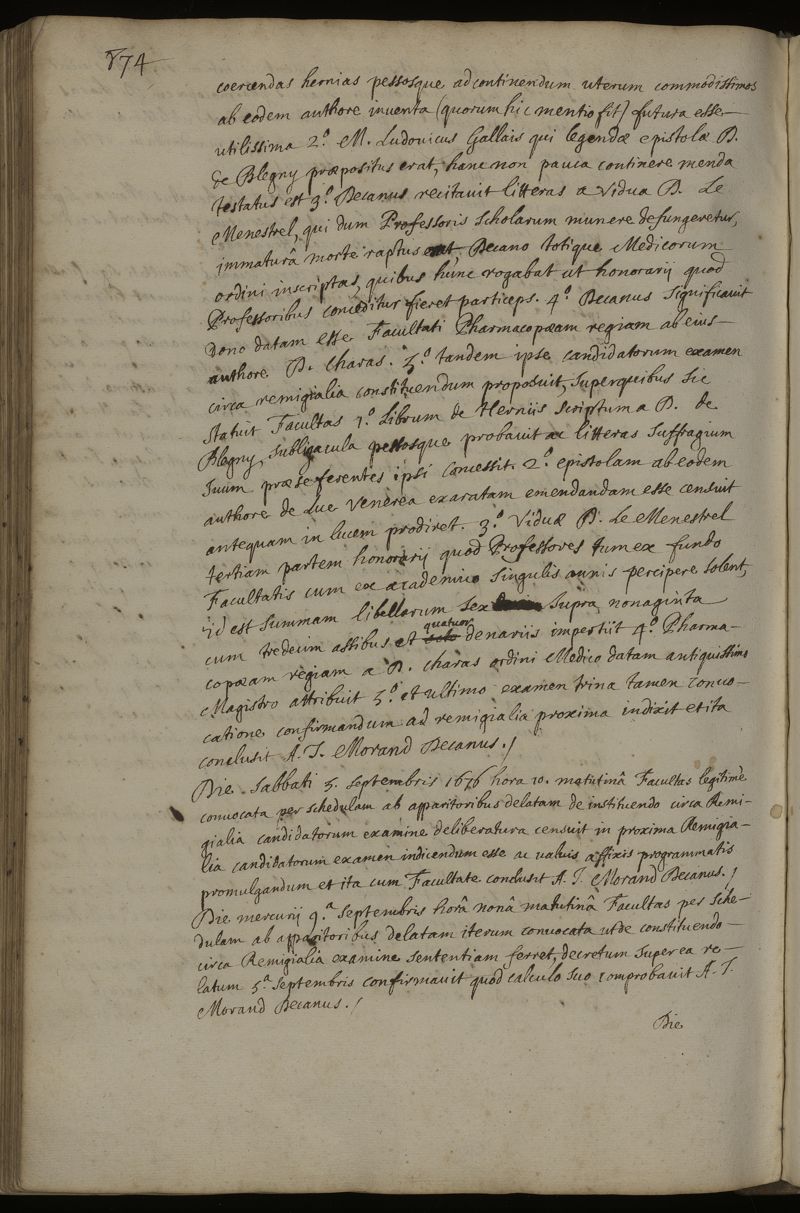 874
coercendas hernias pessosque ad continendum uterum commodissimos
ab eodem authore inventa (quorum hic mentio fit) futura esse
utilissima 2.º M. Ludovicus Gallais qui legendæ epistolæ D.
de Blegny præpositus erat, hanc non pauca continere menda
testatus est 3.º Decanus recitavit litteras a vidua D. Le
Menestrel, qui dum Professoris scholarum munere defungeretur,
immaturâ morte raptus erat Decano totique Medicorum
ordini inscriptas, quibus hunc rogabat ut honorarij quod
Professoribus conceditur fieret particeps. 4.º Decanus significavit
dono datam esse Facultati Pharmacopæam regiam ab eius
authore D. Charas. 5.º tandem ipse candidatorum examen
circa remigialia constituendum proposuit, superquibus sic
statuit Facultas 1.º Librum de Herniis scriptum a D. de
Blegny, subligacula pessosque probavit ac litteras suffragium
suum præ se ferentes ipsi concessit. 2.º epistolam ab eodem
authore de Lue venerea exaratam emendandam esse censuit
antequam in lucem prodiret. 3.º Viduæ D. Le Menestrel
tertiam partem honorarij quod Professores tum ex fundo
Facultatis cum ex academico singulis annis percipere solent,
id est summam libellarum sex supra nonaginta
cum tredecim assibus et quatuor denariis impertiit 4.º Pharma-
copæam regiam a D. Charas ordini Medico datam antiquissimo
Magistro attribuit 5.º et ultimo examen trina tamen convo-
catione confirmandum ad remigialia proxima indixit et ita
conclusit A. J. Morand Decanus./
Die Sabbati 5. Septembris 1676 hora 10. matutinâ Facultas legitimè
convocata per schedulam ab apparitoribus delatam de instituendo circa Remi-
gialia candidatorum examine deliberatura censuit in proxima Remigia-
lia candidatorum examen indicendum esse ac valvis affixis programmatis
promulgandum et ita cum Facultate conclusit A. J. Morand Decanus./
Die mercurij 9.ª Septembris horâ nonâ matutinâ Facultas per sche-
dulam ab apparitoribus delatam iterum convocata ut de constituendo
circa Remigialia examine sententiam ferret, decretum super ea re
latum 5.ª Septembris confirmavit quod calculo suo comprobavit A. J.
Morand Decanus./
Die